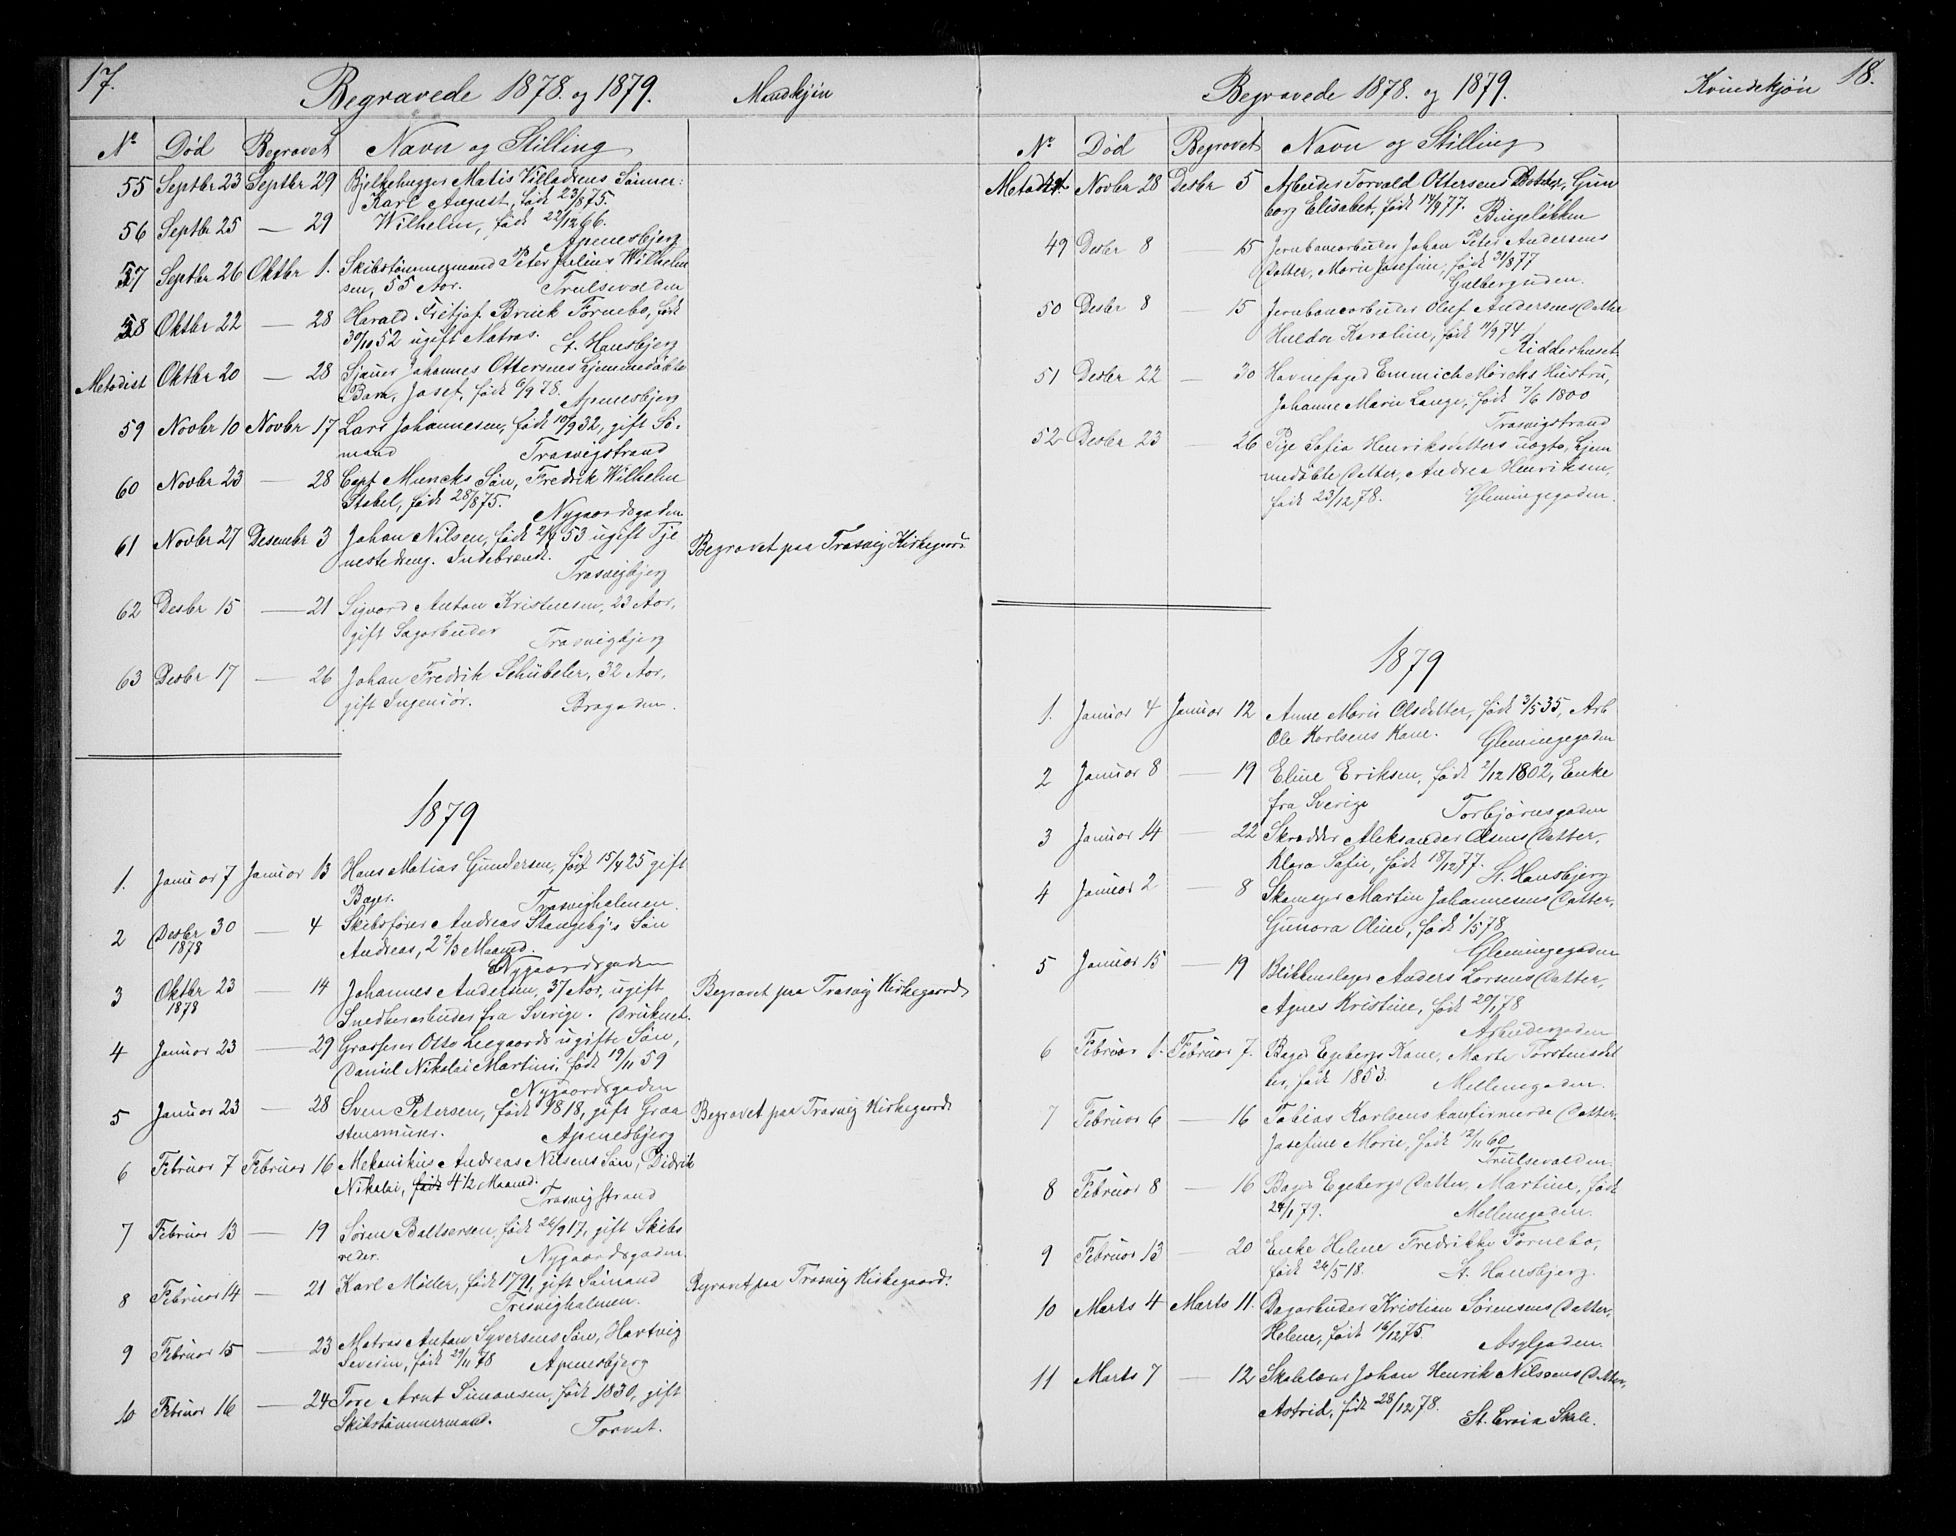 17.
Begravede 1878. og 1879. Mandkjøn
No Død Begravet Navn og Stilling
55 Septbr 23 Septbr 29 Bjelkehugger Matis Villadsens Sønner:
Karl August, født 23/875.
56 Septbr 25 — 29 Wilhelm, født 22/1266.
Apenesbjerg
57 Septbr 26 Oktbr 1. Skibstømmermand Peter Julius Wilhelm
sen, 55 Aar. Trulsevolden
58 Oktbr 22 — 28 Harald Fietjof Brink Tornebo, født
30/1052 ugift Matros. St. Hansbjerg
Metodist Oktbr 20 — 28 Sjauer Johannes Ottersens hjemmedøbte
Barn, Josef, født 6/978. Apenesbjerg
59 Novbr 10 Novbr 17 Lars Johannesen, født 10/932, gift Sø-
mand Trosvigstrand
60 Novbr 23 — 28 Capt Muncks Søn, Fredrik Wilhelm
Stabel, født 28/875.
Nygaardsgaden
61 Novbr 27 Desembr 3 Johan Nilsen, født 2/653 ugift Tje Begravet paa Trosvig Kirkegaard
nestedreng. Indebrændt.
Trosvigbjerg
62 Desbr 15 — 21 Sigvard Anton Kristensen, 23 Aar,
gift Sagarbeider Trosvigbjerg
63 Desbr 17 — 26 Johan Fredrik Schübeler, 32 Aar,
gift Ingeniør. Brogaden.
1879
1. Januar 7 Januar 13 Hans Matias Gundersen, født 15/425 gift
Bager. Trosvigholmen.
2 Desbr 30 — 4 Skibsfører Andreas Stangeby's Søn
1878 Andreas, 2 2/3 Maaned.
Nygaardsgaden
3 Oktbr 23 — 14 Johannes Andersen, 37 Aar, ugift Begravet paa Trosvig Kirkegaard
1878 Snedkerarbeider fra Sverige. Druknet.
4 Januar 23 — 29 Grosserer Otto Leegaards ugifte Søn,
Daniel Nikolai Martini, født 19/1159
Nygaardsgaden
5 Januar 23 — 28 Sven Petersen, født 1818, gift Graa Begravet paa Trosvig Kirkegaard
stensmurer. Apenesbjerg
6 Februar 7 Februar 16 Mekanikus Andreas Nilsens Søn, Didrik
Nikolai, født 4 1/2 Maaned.
Trosvigstrand
7 Februar 13 — 19 Søren Baltsersen, født 26/917, gift Skibs
reder. Nygaardsgaden.
8 Februar 14 — 21 Karl Møller, født 1791, gift Sømand Begravet paa Trosvig Kirkegaard.
Trosvigholmen.
9 Februar 15 — 23 Matros Anton Syversens Søn, Hartvig
Severin, født 29/1178 Apenesbjerg
10 Februar 16 — 24 Tore Arnt Simonsen, født 1830, gift
Skibstømmermand. Torvet.
18.
Begravede 1878. og 1879. Kvindekjøn
No Død Begravet Navn og Stilling
Metodist. Novbr 28 Desbr 5 Arbeider Torvald Ottersens Datter, Gun
borg Elisabet, født 14/977. Bingeløkken
49 Desbr 8 — 15 Jernbanearbeider Johan Peter Andersens
Datter, Marie Josefine, født 31/877
Gulbergsiden.
50 Desbr 8 — 15 Jernbanearbeider Oluf Andersens Datter
Hulda Karoline, født 11/974
Ridderhuset
51 Desbr 22 — 30 Havnefoged Emmich Mörchs Hustru,
Johanne Marie Lange, født 7/6 1800
Trosvigstrand
52 Desbr 23 — 26 Pige Sofia Henriksdatters uægte, hjem
medøbte Datter, Andrea Henriksen,
født 23/1278. Glemmegaden.
1879
1. Januar 4 Januar 12 Anne Marie Olsdatter, født 3/535, Arb
Ole Karlsens Kone. Glemmegaden
2 Januar 8 — 19 Eline Eriksen, født 2/12 1802, Enke
fra Sverige Torbjørnsgaden
3 Januar 14 — 22 Skrædder Aleksander Olsens Datter,
Klara Sofie, født 18/1277.
St. Hansbjerg
4 Januar 2 — 8 Skomager Martin Johannesens Datter,
Gunora Oline, født 1/578
Glemmegaden
5 Januar 15 — 19 Blikkenslager Anders Larsens Datter,
Agnes Kristine, født 20/178
Arbeidergaden
6 Februar 1. Februar 7. Bager Egebergs Kone, Marte Torstensdat
ter, født 1853. Mellemgaden.
7 Februar 6 — 16 Tobias Karlsens konfirmerede Datter
Josefine Marie, født 12/1160
Trulsevolden
8 Februar 8 — 16 Bager Egebergs Datter, Martine, født
24/179. Mellemgaden.
9 Februar 13 — 20 Enke Helene Fredrikke Tornebo,
født 26/518. St. Hansbjerg.
10 Marts 4 Marts 11. Dagarbeider Kristian Sørensens Datter,
Helene, født 16/1275. Asylgaden.
11 Marts 7 — 12 Skolelærer Johan Henrik Nilssens Datter,
Astrid, født 28/1278. St. Croix Skole.